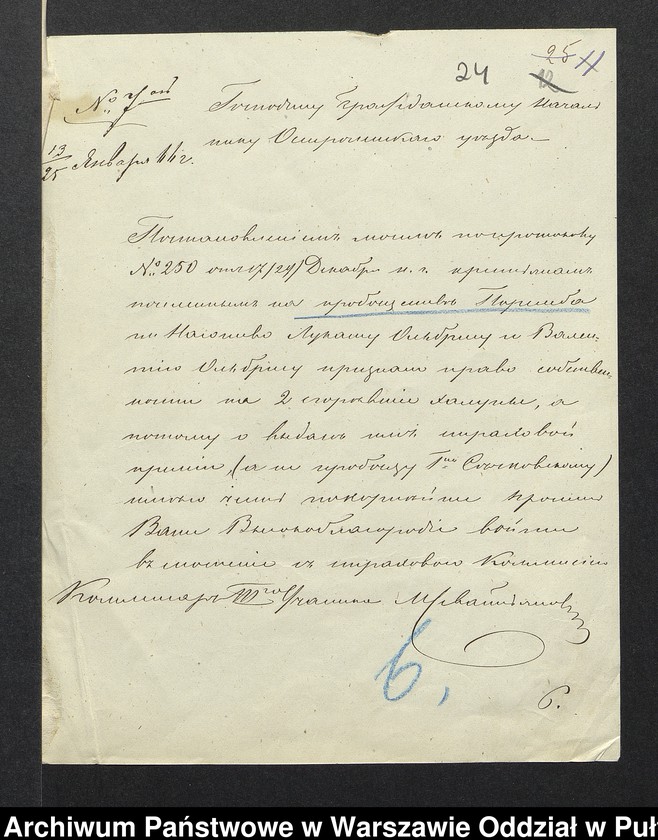 25 H
24
12
№ 7ой
Господину Гражданскому Началь
нику Остроленского уезда
13
25 Января 66 г.
Постановлением моим по протоколу
№ 250 от 17/29 Декабря н. г. крестьянам
поселенным на пробоцевство Поремба
Лукашу Ольбрису и Вален-
тию Ольбрису признано право собствен
ности на 2 сгоревшие халупы, а
потому о выдаче им страховой
премии, (а не пробощу Гну Сочковскому)
имею честь покорнейше просить
Ваше Высокоблагородие войти
в сношение с страховою Коммисиею
Коммисар IIIго Участка
6,
6.
Archiwum Państwowe w Warszawie Oddział w Puł